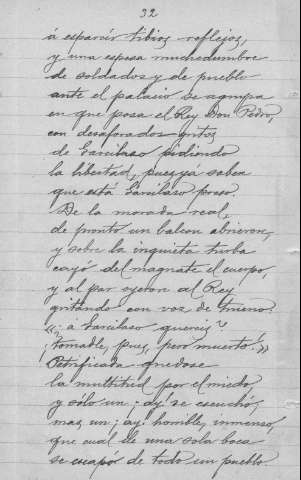 32
á esparcir tibios reflejos,
y una espesa muchedumbre
de soldados y de pueblo
ante el palacio se agrupa
en que posa el Rey Don Pedro,
con desaforados gritos
de Garcilaso pidiendo
la libertad, pues ya saben
que está Garcilaso preso.
De la morada real,
de pronto un balcon abrieron,
y sobre la inquieta turba
cayó del magnate el cuerpo,
y al par oyeron al Rey
gritando con voz de trueno:
«¿a Garcilaso quereis?
¡tomadle, pues, pero muerto!»
Petrificada quedose
la multitud por el miedo,
y sólo un ¡ay! se escuchó,
mas un ¡ay! horrible, inmenso,
que cual de una sola boca
se escapó de todo un pueblo.